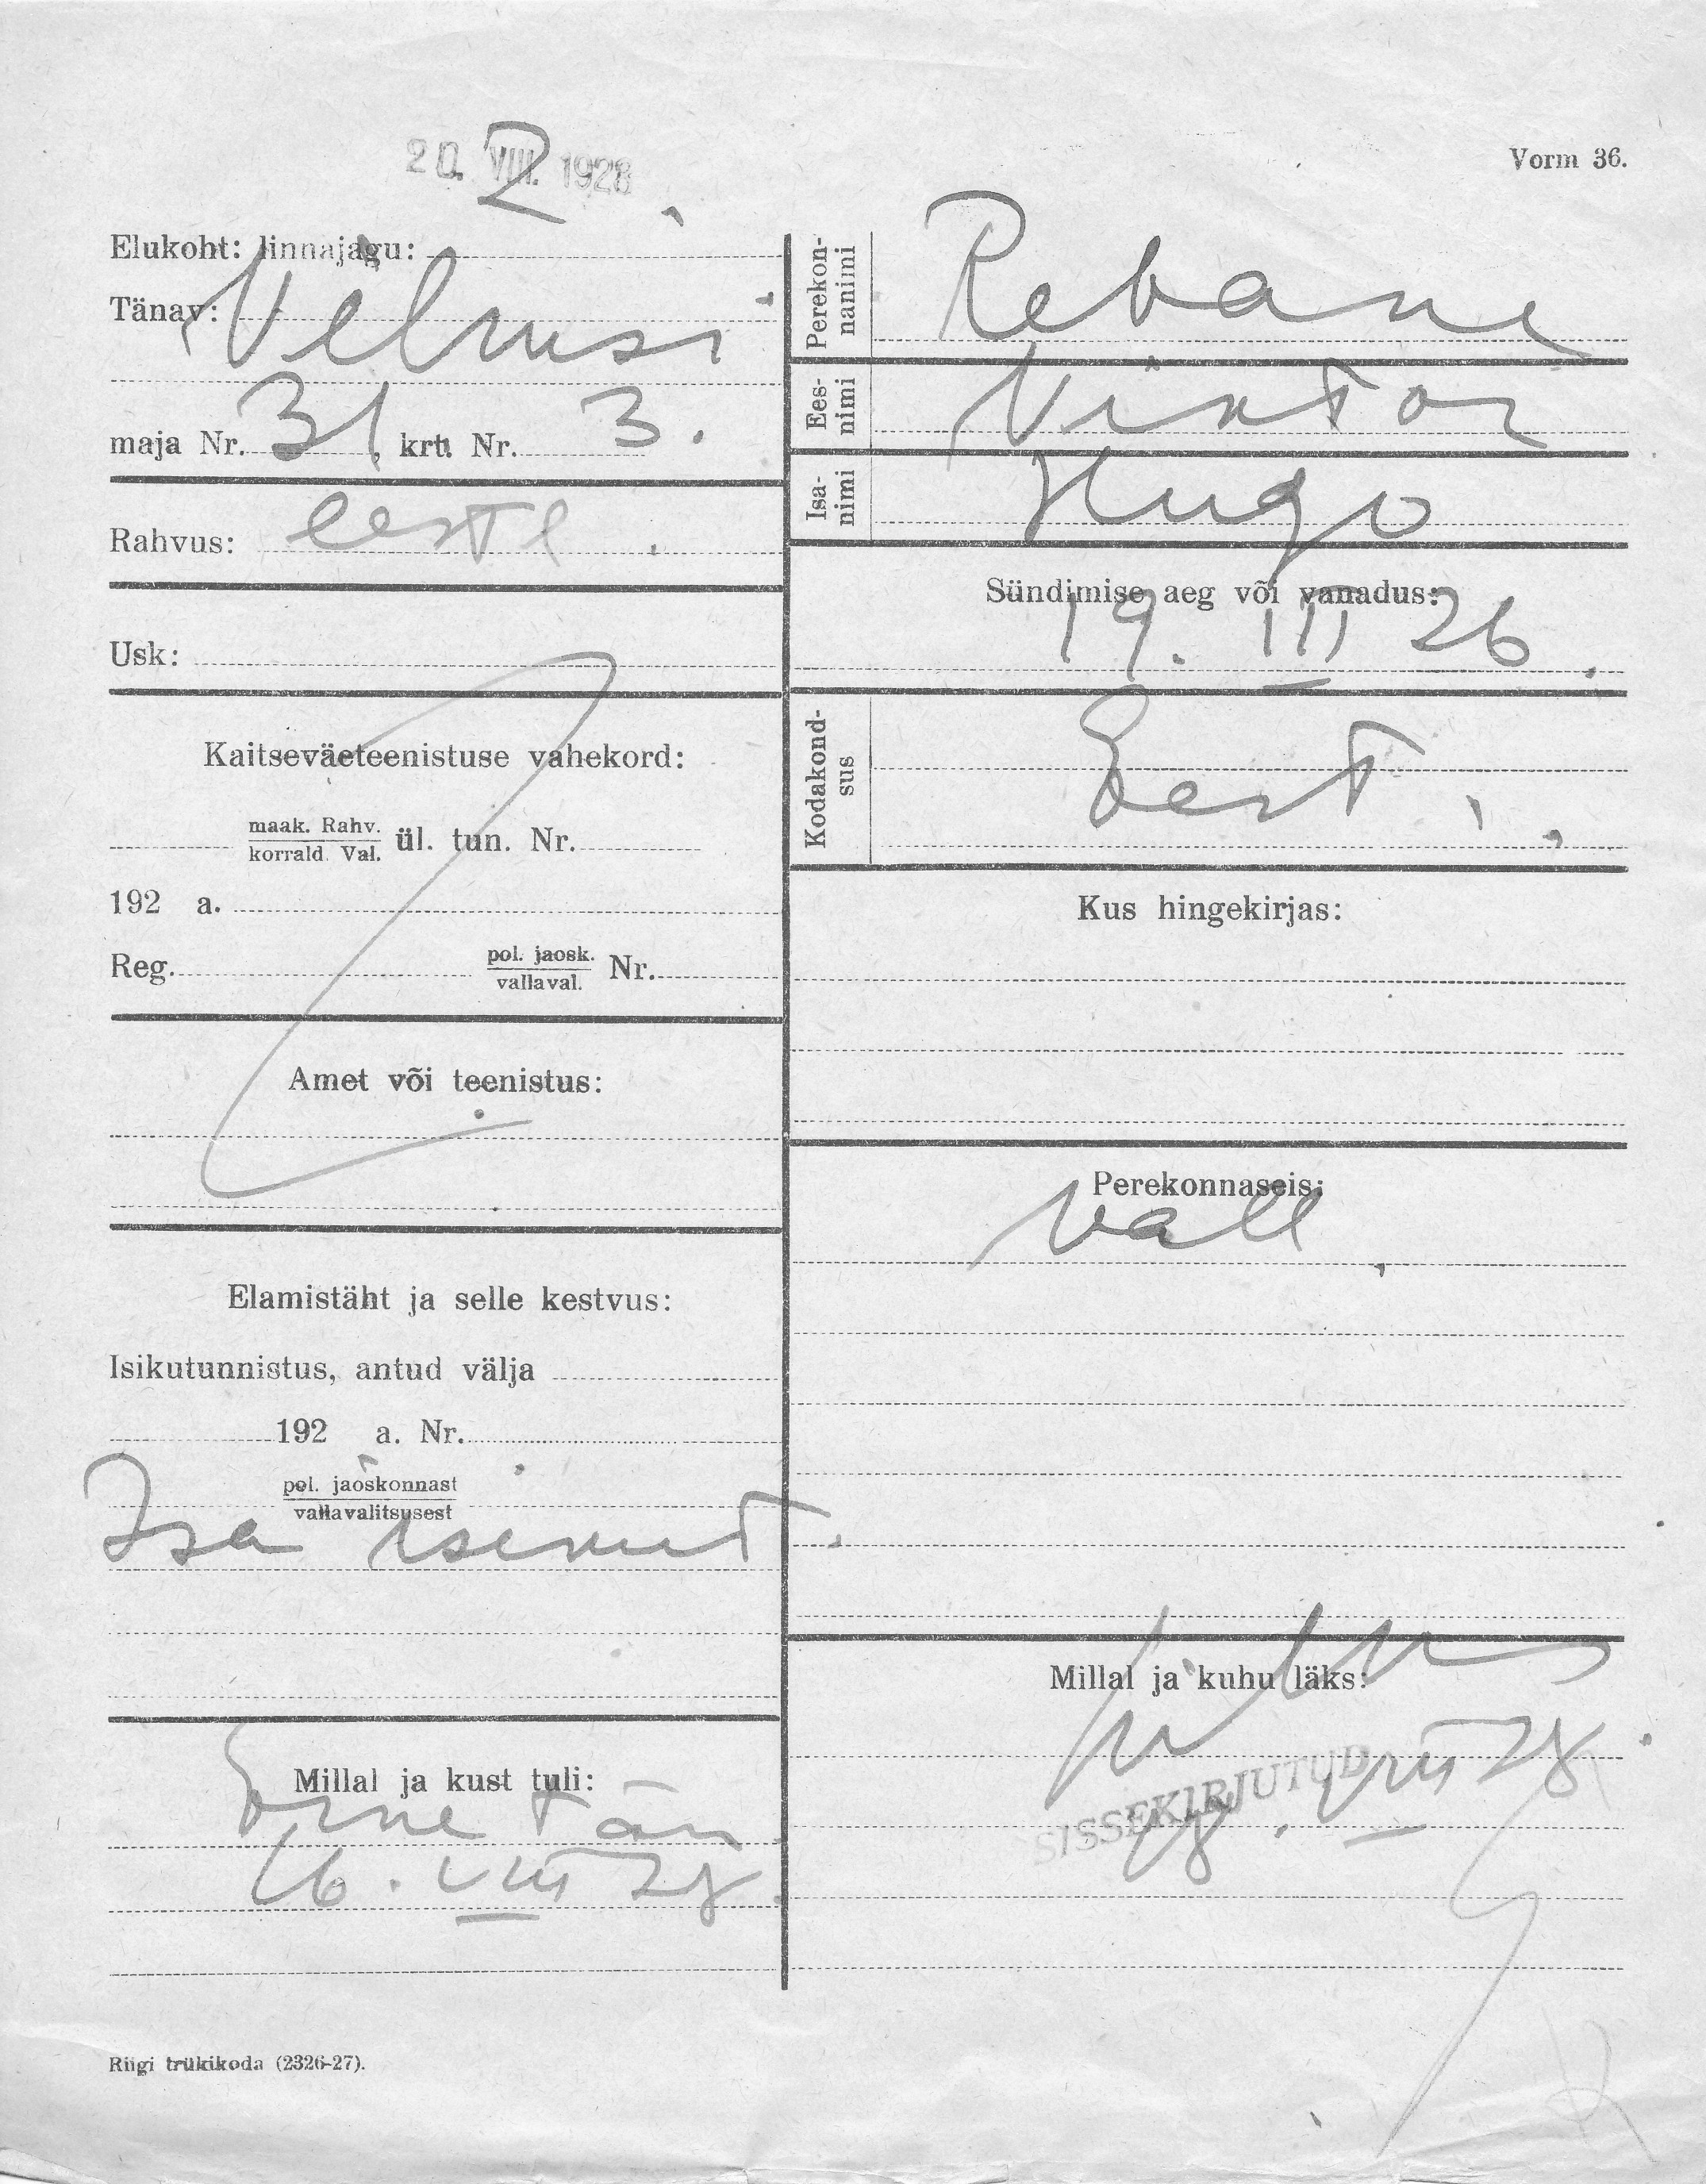 20. VIII. 1928
2
Vorm 36.
Elukoht: linnajagu:
Tänav: Velmsi
maja Nr. 31, krt. Nr. 3.
Rahvus: eesti
Usk:
Kaitseväeteenistuse vahekord:
maak. Rahv.
korrald. Val. ül. tun. Nr.
192 a.
Reg. pol. jaosk.
vallaval. Nr.
Amet või teenistus:
Elamistäht ja selle kestvus:
Isikutunnistus, antud välja
192 a. Nr.
pol. jaoskonnast
vallavalitsusest
Isa
Millal ja kust tuli:
Erne tän.
16. VIII 28.
Perekon-
nanimi
Rebane
Ees-
nimi
Viktor
Isa-
nimi
Hugo
Sündimise aeg või vanadus:
19. III 26.
Kodakond-
sus
Eest.
Kus hingekirjas:
Perekonnaseis:
vall.
Millal ja kuhu läks:
SISSEKIRJUTUD
18. VIII 28.
Riigi trükikoda (2326-27).